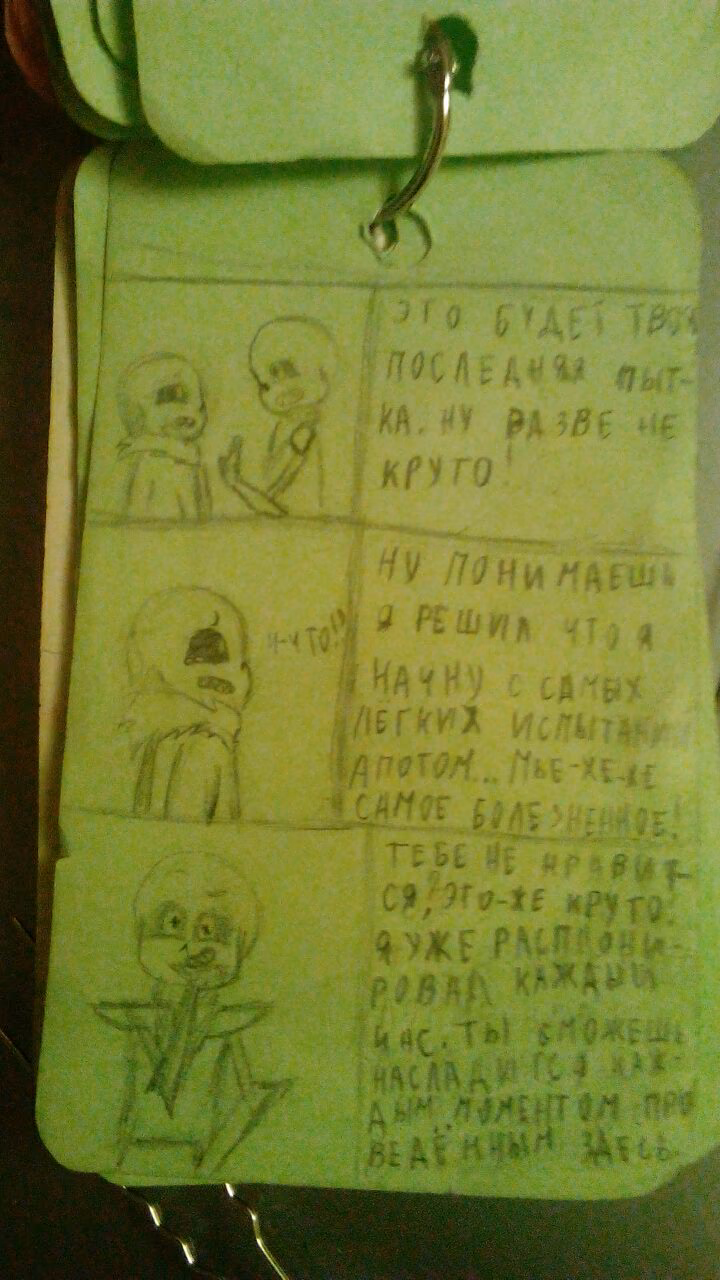 ЭТО БУДЕТ ТВОЯ
ПОСЛЕДНЯЯ ПЫТ-
КА. НУ РАЗВЕ НЕ
КРУТО!
Ч-ЧТО!!
НУ ПОНИМАЕШЬ
Я РЕШИЛ ЧТО Я
НАЧНУ С САМЫХ
ЛЕГКИХ ИСПЫТАНИЙ
А ПОТОМ... МЬЕ-ХЕ-ХЕ
САМОЕ БОЛЕЗНЕННОЕ!
ТЕБЕ НЕ НРАВИТ-
СЯ? ЭТО-ЖЕ КРУТО!
Я УЖЕ РАСПЛОНИ-
РОВАЛ КАЖДЫЙ
ЧАС. ТЫ СМОЖЕШЬ
НАСЛАДИТСЯ КАЖ-
ДЫМ МОМЕНТОМ ПРО
ВЕДЁННЫМ ЗДЕСЬ.